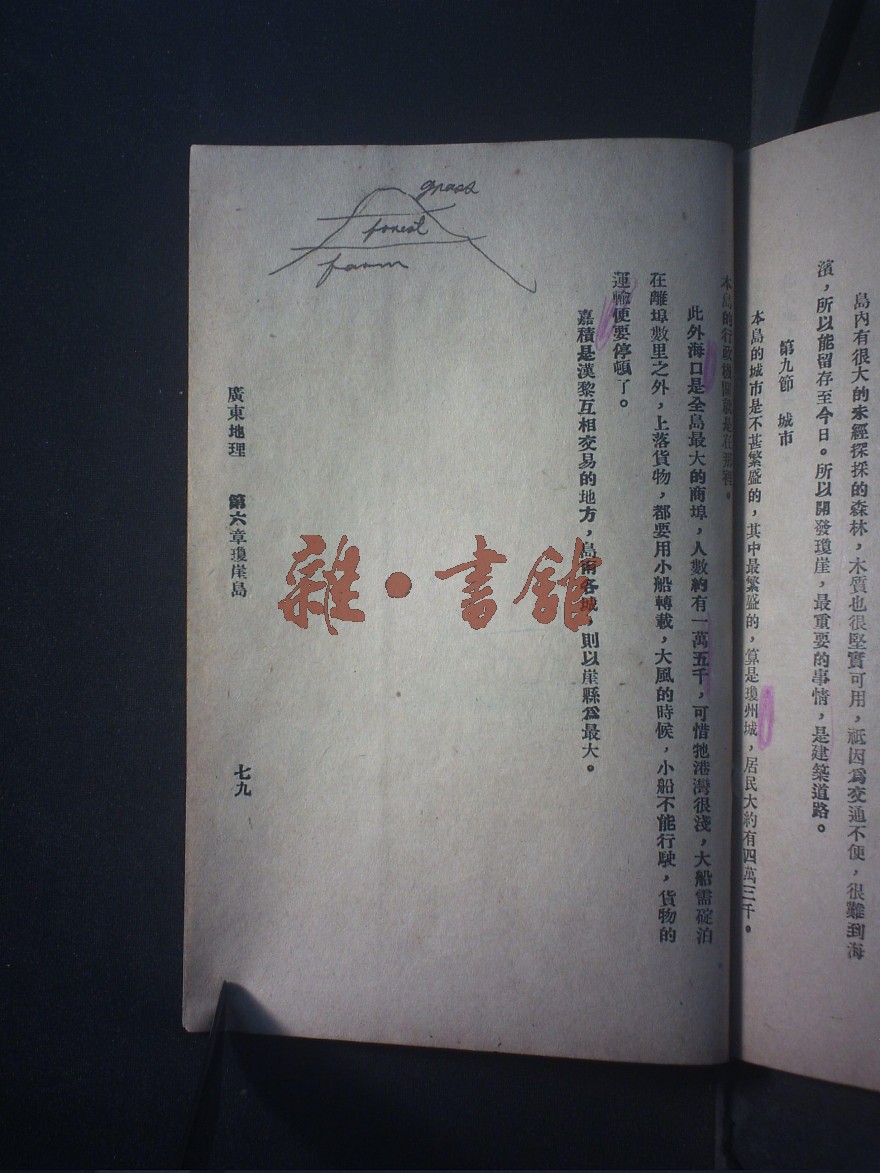 島內有很大的未經探採的森林，木質也很堅實可用，祇因爲交通不便，很難到海
濱，所以能留存至今日。所以開發瓊崖，最重要的事情，是建築道路。
第九節 城市
本島的城市是不甚繁盛的，其中最繁盛的，算是瓊州城，居民大約有四萬三千。
本島的行政機關就是在那裡。
此外海口是全島最大的商埠，人數約有一萬五千，可惜牠港灣很淺，大船需碇泊
在離埠數里之外，上落貨物，都要用小船轉載，大風的時候，小船不能行駛，貨物的
運輸便要停頓了。
嘉積是漢黎互相交易的地方，島南各城，則以崖縣爲最大。
廣東地理 第六章瓊崖島
七九
grass
forest
farm
雜·書館